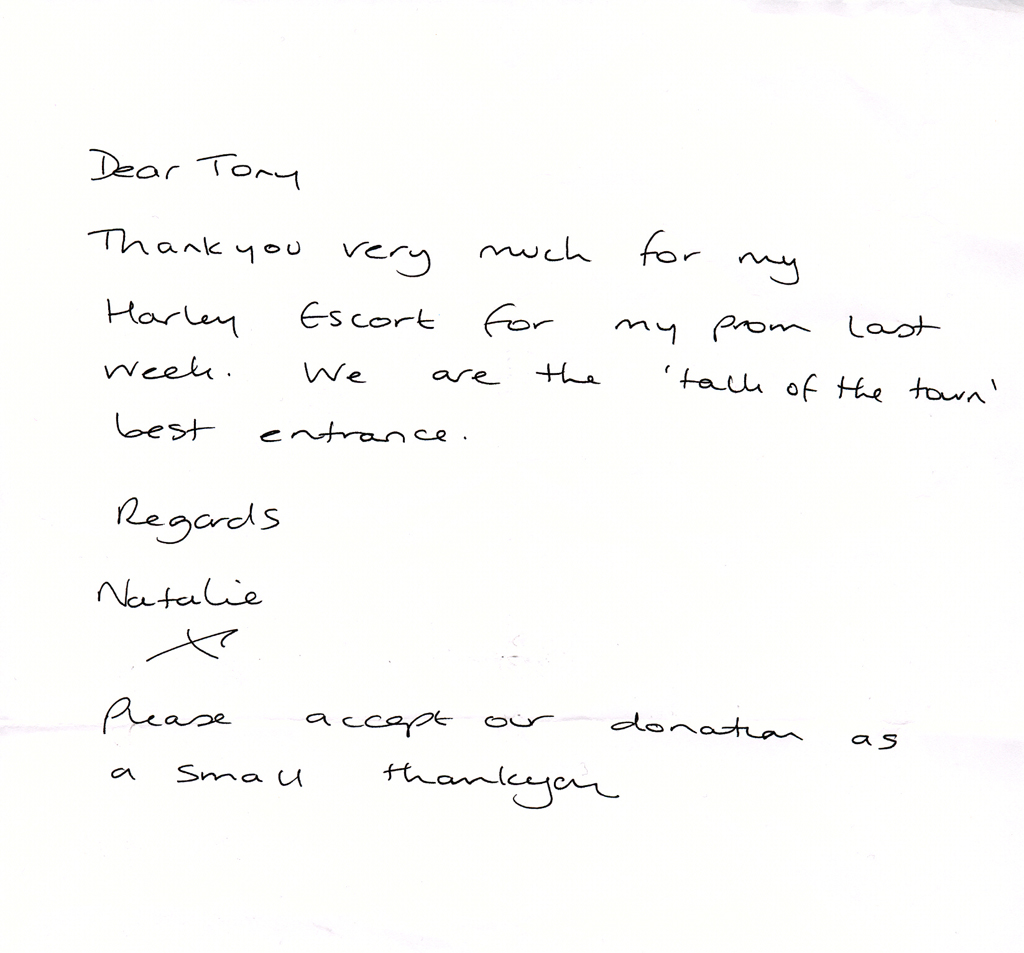 Dear Tony
Thankyou very much for my
Harley Escort for my prom last
week. We are the 'talk of the town'
best entrance.
Regards
Natalie
X
Please accept our donation as
a small thankyou